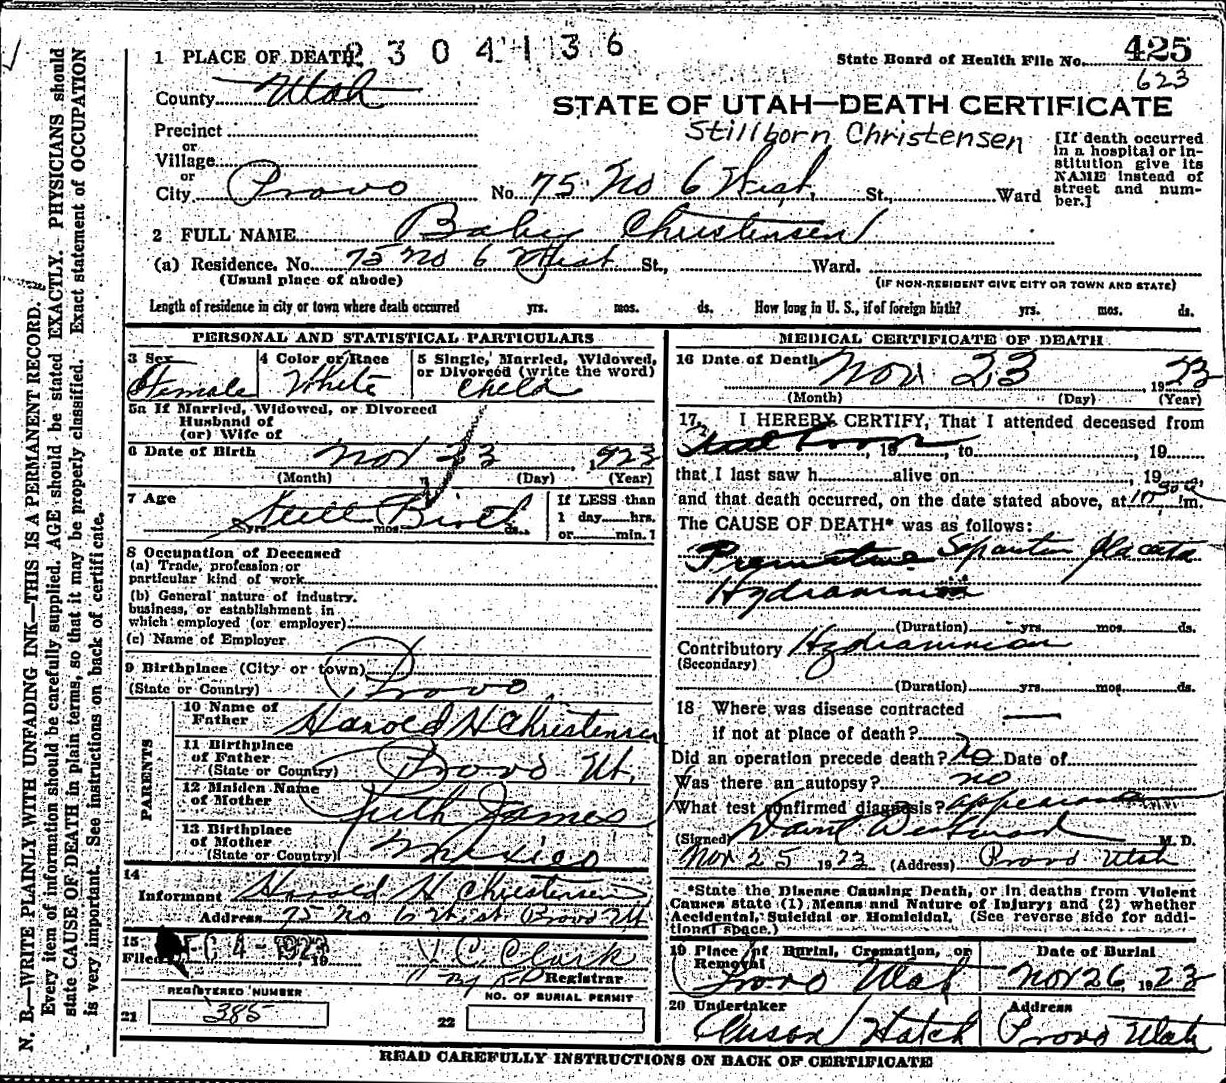 2304136
1 PLACE OF DEATH
State Board of Health File No. 425
623
County Utah
STATE OF UTAH—DEATH CERTIFICATE
Stillborn Christensen
Precinct
or
Village
or
City Provo No. 75 No 6 West St., Ward
[If death occurred
in a hospital or in-
stitution give its
NAME instead of
street and num-
ber.]
2 FULL NAME Baby Christensen
(a) Residence. No. 75 no 6 West St., Ward.
(Usual place of abode)
(IF NON-RESIDENT GIVE CITY OR TOWN AND STATE)
Length of residence in city or town where death occurred yrs. mos. ds. How long in U. S., if of foreign birth? yrs. mos. ds.
PERSONAL AND STATISTICAL PARTICULARS
3 Sex
Female
4 Color or Race
White
5 Single, Married, Widowed,
or Divorced (write the word)
Child
5a If Married, Widowed, or Divorced
Husband of
(or) Wife of
6 Date of Birth Nov 23, 1923
(Month) (Day) (Year)
7 Age
Still Birth
yrs. mos. ds.
If LESS than
1 day hrs.
or min.
8 Occupation of Deceased
(a) Trade, profession or
particular kind of work
(b) General nature of industry,
business, or establishment in
which employed (or employer)
(c) Name of Employer
9 Birthplace (City or town)
(State or Country) Provo
PARENTS
10 Name of
Father Harold H Christensen
11 Birthplace
of Father
(State or Country) Provo Ut.
12 Maiden Name
of Mother Ruth James
13 Birthplace
of Mother
(State or Country) Mexico
14
Informant Harold H Christensen
Address 75 no 6 West Provo Ut.
15
Filed DEC 4 - 1923, 19 J. C. Clark
Registrar
REGISTERED NUMBER
NO. OF BURIAL PERMIT
21 385
22
MEDICAL CERTIFICATE OF DEATH
16 Date of Death Nov 23, 1923
(Month) (Day) (Year)
17 I HEREBY CERTIFY, That I attended deceased from
, 19 , to , 19
that I last saw h alive on , 19
and that death occurred, on the date stated above, at m.
The CAUSE OF DEATH* was as follows:
Premature
(Duration) yrs. mos. ds.
Contributory
(Secondary)
(Duration) yrs. mos. ds.
18 Where was disease contracted
if not at place of death?
Did an operation precede death? no Date of
Was there an autopsy? no
What test confirmed diagnosis?
(Signed) M. D.
Nov 25 1923 (Address) Provo Utah
*State the Disease Causing Death, or in deaths from Violent
Causes state (1) Means and Nature of Injury; and (2) whether
Accidental, Suicidal or Homicidal. (See reverse side for addi-
tional space.)
19 Place of Burial, Cremation, or
Removal
Provo Utah
Date of Burial
Nov 26, 1923
20 Undertaker
Hatch
Address
Provo Utah
READ CAREFULLY INSTRUCTIONS ON BACK OF CERTIFICATE
N. B.—WRITE PLAINLY WITH UNFADING INK—THIS IS A PERMANENT RECORD.
Every item of information should be carefully supplied. AGE should be stated EXACTLY. PHYSICIANS should
state CAUSE OF DEATH in plain terms, so that it may be properly classified. Exact statement of OCCUPATION
is very important. See instructions on back of certificate.